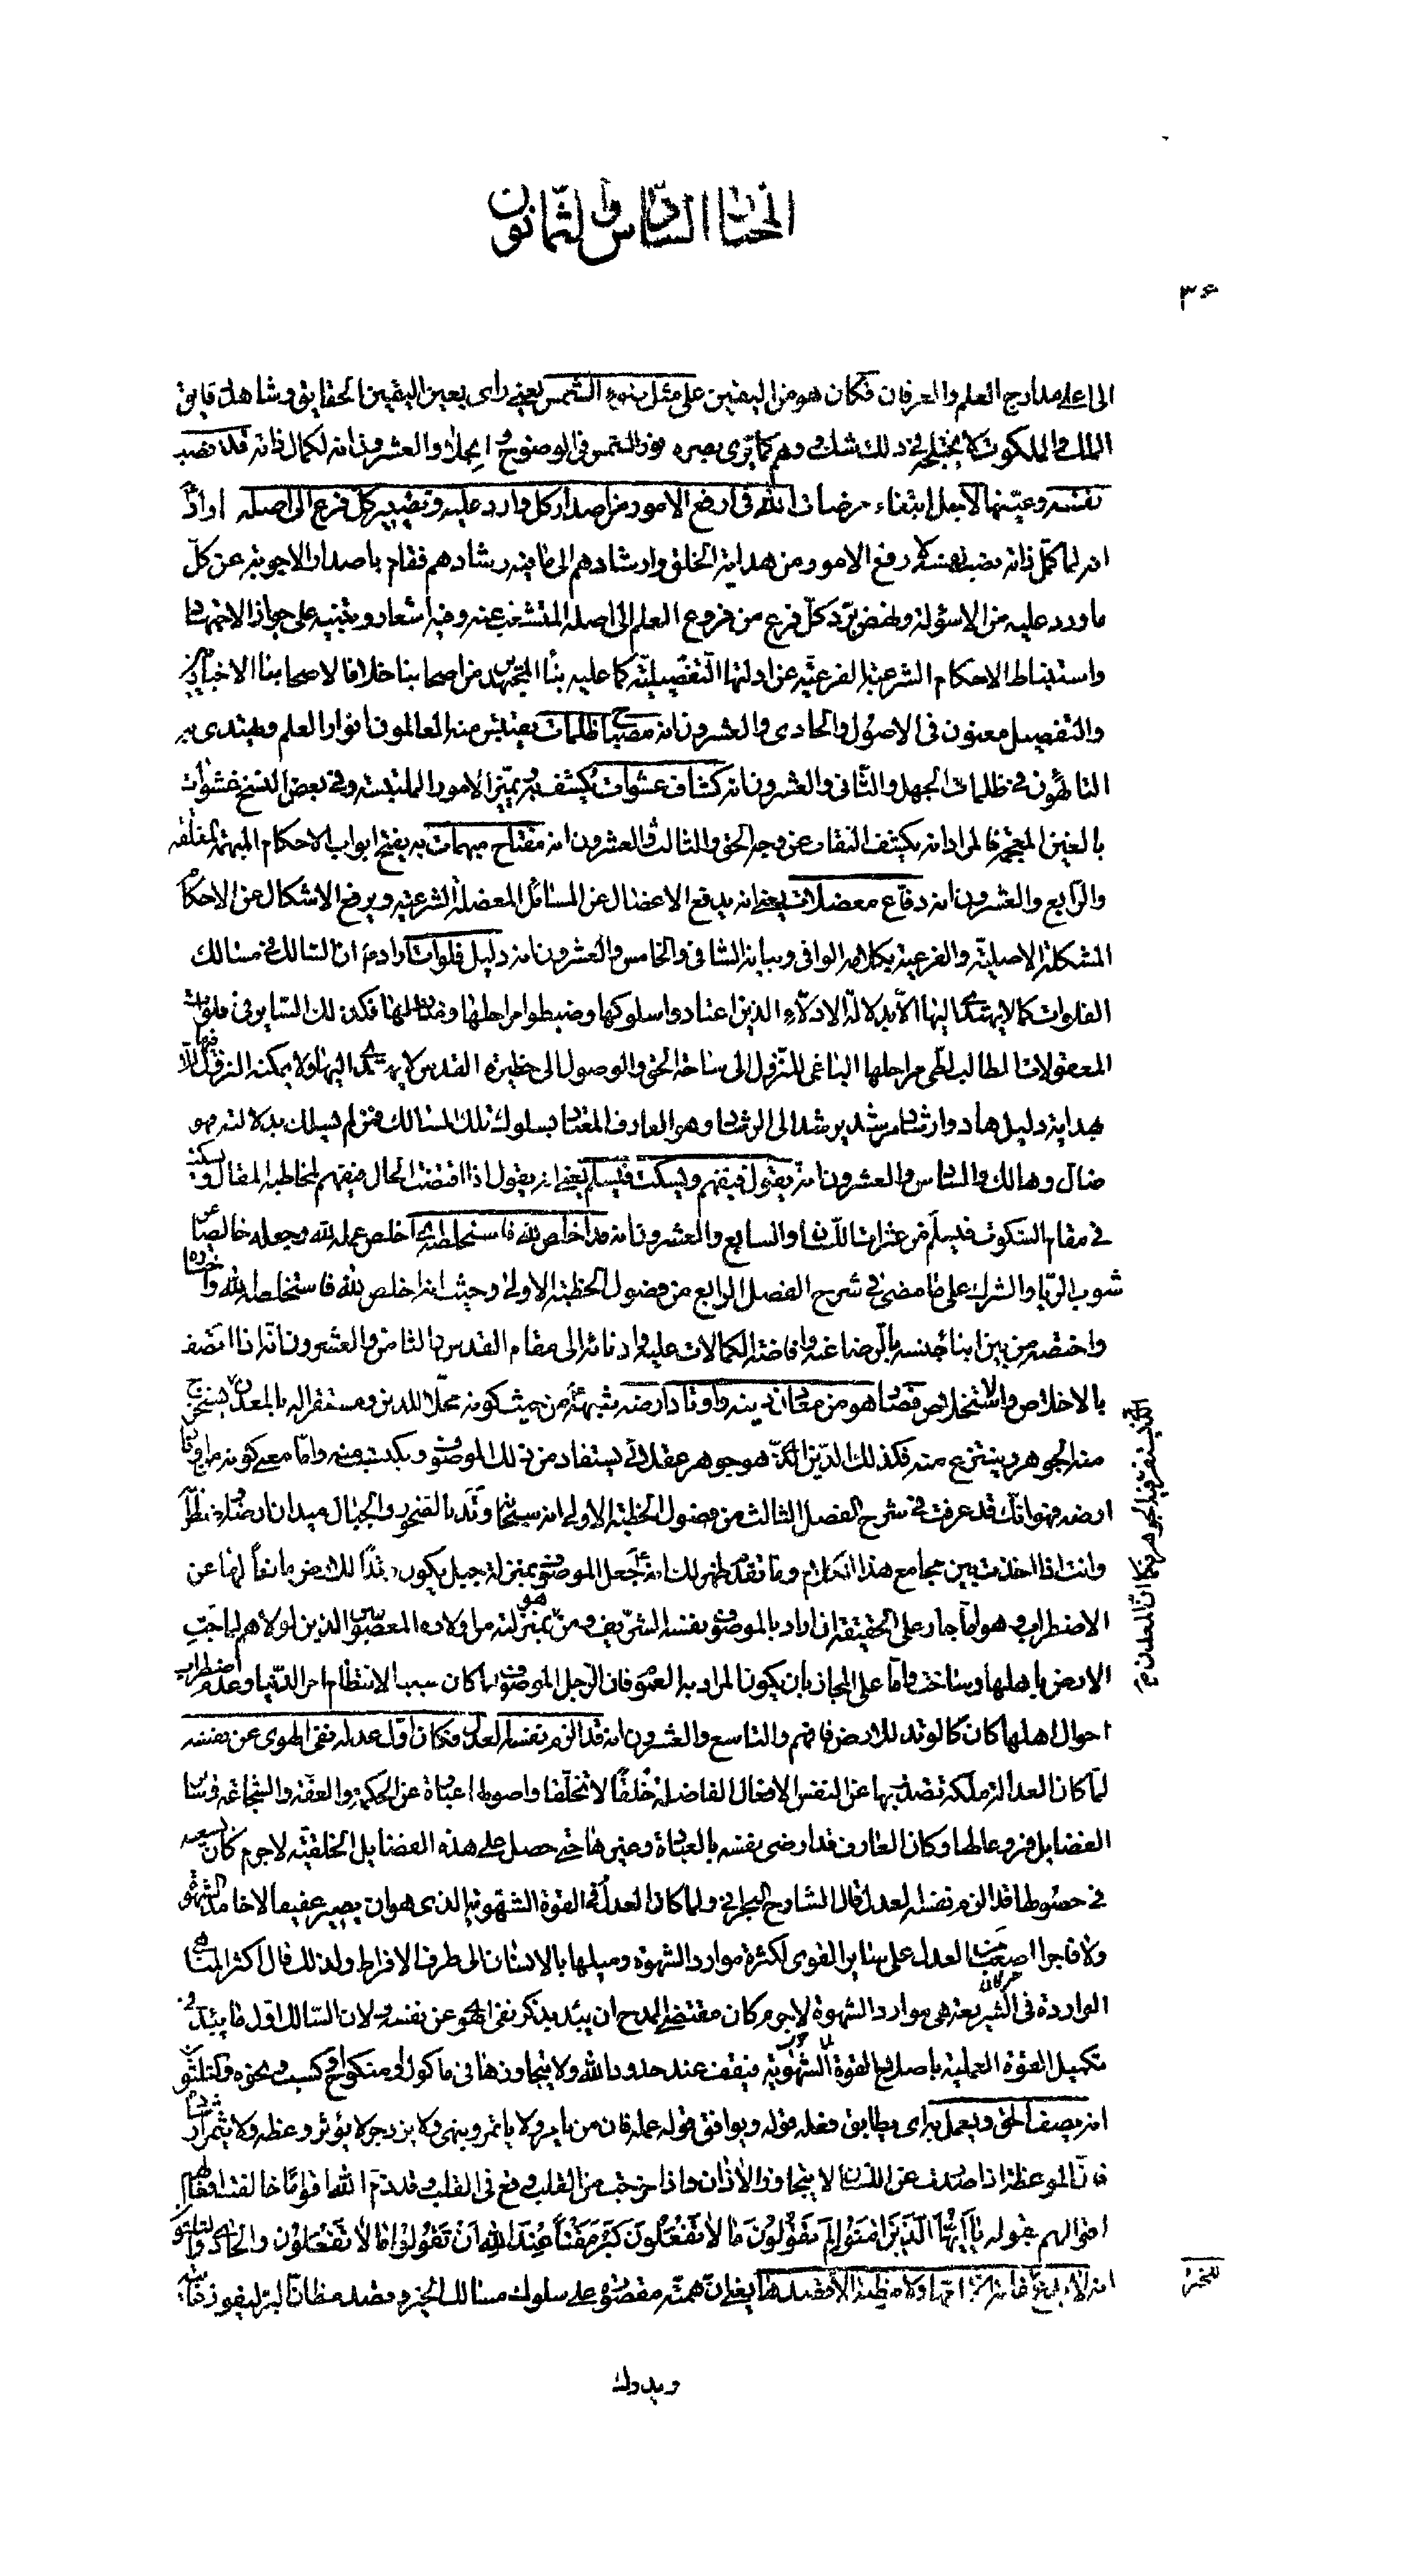 المختار السادس والثمانون
٣۶
الى اعلى مدارج العلم والعرفان فكان هو من اليقين على مثل ضوء الشمس يعنى راى بعين اليقين الحقايق وشاهد دقايق
الملك والملكوت لا يختلجه فى ذلك شك ووهم كما يرى بصره نور الشمس فى الوضوح والجلاء والعشرون انه لكمال ذاته قد نصب
نفسه وعيّنها لاجل ابتغاء مرضات الله فى ارفع الامور من اصدار كل وارد عليه وتصيير كلّ فرع الى اصله اراد
انه لما كمّل ذاته نصب نفسه لارفع الامور من هداية الخلق وارشادهم الى ما فيه رشادهم فقام باصدار الاجوبة عن كلّ
ما ورد عليه من الاسئولة ونهض بردّ كلّ فرع من فروع العلم الى اصله المتشعّب عنه وفيه اشعار وتنبيه على جواز الاجتهاد
واستنباط الاحكام الشرعية الفرعيّة عن ادلتها التفصيليّة كما عليه بناء المجتهدين من اصحابنا خلافا لاصحابنا الاخباريين
والتفصيل معنون فى الاصول والحادى والعشرون انه مصباح ظلمات يقتبس منه العالمون انوار العلم ويهتدى به
التائهون فى ظلمات الجهل والثانى والعشرون انه كشاف عشوات يكشف به ويميّز الامور الملتبسة وفى بعض النسخ غشوات
بالغين المعجمة فالمراد انه يكشف النقاب عن وجه الحق والثالث والعشرون انه مفتاح مبهمات به يفتح ابواب الاحكام المبهمة المغلقة
والرابع والعشرون انه دفّاع معضلات يعنى انه يدفع الاعضال عن المسائل المعضلة الشرعية ويرفع الاشكال عن الاحكام
المشكلة الاصلية والفرعية بكلامه الوافى وبيانه الشافى والخامس والعشرون انه دليل فلوات اراد به انّ السالك فى مسالك
الفلوات كما لا يهتدى اليها الا بدلالة الادلاء الذين اعتادوا سلوكها وضبطوا مراحلها ومنازلها فكذلك السّاير فى فلوات
المعقولات الطالب لطى مراحلها الباغى للنزول الى ساحة الحق والوصول الى حظيرة القدس لا يهتدى اليها ولا يمكنه النزول فيها الا
بهداية دليل هاد وارشاد مرشد يرشد الى الرشاد وهو العارف المعتاد بسلوك تلك المسالك فمن لم يسلك بدلالته فهو
ضالّ وهالك والسادس والعشرون انه يقول فيفهم ويسكت فيسلم يعنى انه يقول اذا اقتضت الحال فيفهم المخاطب المقال ويسكت
فى مقام السكوت فيسلم من عثرات اللسان والسابع والعشرون انه قد اخلص لله فاستخلصه اى اخلص عمله لله وجعله خالصا عن
شوب الريا والشرك على ما مضى فى شرح الفصل الرابع من فصول الخطبة الاولى وحيث انه اخلص لله فاستخلصه الله واختاره
واختصّه من بين ابناء جنسه بالرضا عنه وافاضة الكمالات عليه وادنائه الى مقام القدس والثامن والعشرون انّه اذا اتصف
بالاخلاص والاستخلاص فصار هو من معادن دينه واوتاد ارضه شبهه من حيث كونه محلا للدين ومستقرا له بالمعدن يستخرج
منه الجوهر وينتزع منه فكذلك الدين الذى هو جوهر عقلانى يستفاد من ذلك الموصوف ويكتسب منه وامّا معنى كونه من اوتاد
ارضه فهو انّك قد عرفت فى شرح الفصل الثالث من فصول الخطبة الاولى انه سبحانه وتّد بالصخور والجبال ميدان ارضه
وانت اذا اخذت بين مجامع هذا الكلام وما تقدم ظهر لك انه جعل الموصوف بمنزلة جبل يكون وتدا للارض مانعا لها عن
الاضطراب وهو امّا جار على الحقيقة ان اراد بالموصوف نفسه الشريف ومن هو بمنزلته من اولاده المعصومين الذين لولاهم لماجت
الارض باهلها وساخت وامّا على المجاز بان يكون المراد به العموم فان الرجل الموصوف لما كان سببا لانتظام امر الدنيا وعدم اضطراب
احوال اهلها كان كالوتد للارض فافهم والتاسع والعشرون انه قد الزم نفسه العدل فكان اول عدله نفى الهوى عن نفسه
لمّا كان العدالة ملكة تصدر بها عن النفس الافعال الفاضلة خُلقًا لا تخلّقا واصولها عبارة عن الحكمة والعفة والشجاعة وساير
الفضايل فروعا لها وكان العارف قد ارضى نفسه بالعبادة وغيرها حتى حصل على هذه الفضايل الخلقيّة لا جرم كان بسعيه
فى حصولها قد الزم نفسه العدل قال الشارح البحرانى ولما كان العدل فى القوة الشهوية الذى هو ان يصير عفيفا لا خامد الشهوة
ولا فاجرا اصعب من العدل على ساير القوى لكثرة موارد الشهوة وميلها بالانسان الى طرف الافراط ولذلك قال اكثر المناهى
الواردة فى الشريعة هى موارد الشهوة لا جرم كان مقتضى المدح ان يبدء بذكر نفى الهوى عن نفسه ولان السّالك اول ما يبدء فى
تكميل القوة العملية باصلاح القوة الشهوية فيقف عند حدود الله ولا يتجاوزها فى ماكول او منكوح او كسب ونحوه والثلثون
انه يصف الحق ويعمل به اى يطابق فعله قوله ويوافق قوله عمله فان من يامر ولا ياتمر وينهى ولا يزدجر لا يؤثر وعظه ولا يثمر ارشاده
فانّ الموعظة اذا صدرت عن اللسان لا يتجاوز الاذان واذا خرجت من القلب وقع فى القلب وقد ذمّ الله اقواما خالفت افعالهم
اقوالهم بقوله يا ايّها الذين امنوا لم تقولون ما لا تفعلون كبر مقتا عند الله ان تقولوا ما لا تفعلون والحادى والثلثون
انه لا يدع للخير غاية الا امّها ولا مظنة الا قصدها يعنى انّ همته مقصورة على سلوك مسالك الخير وقصد مظانّ البرّ ليفوز غايته
ويدرك
الذى يستقر فيه الجوهر فكما ان المعدن
للخير